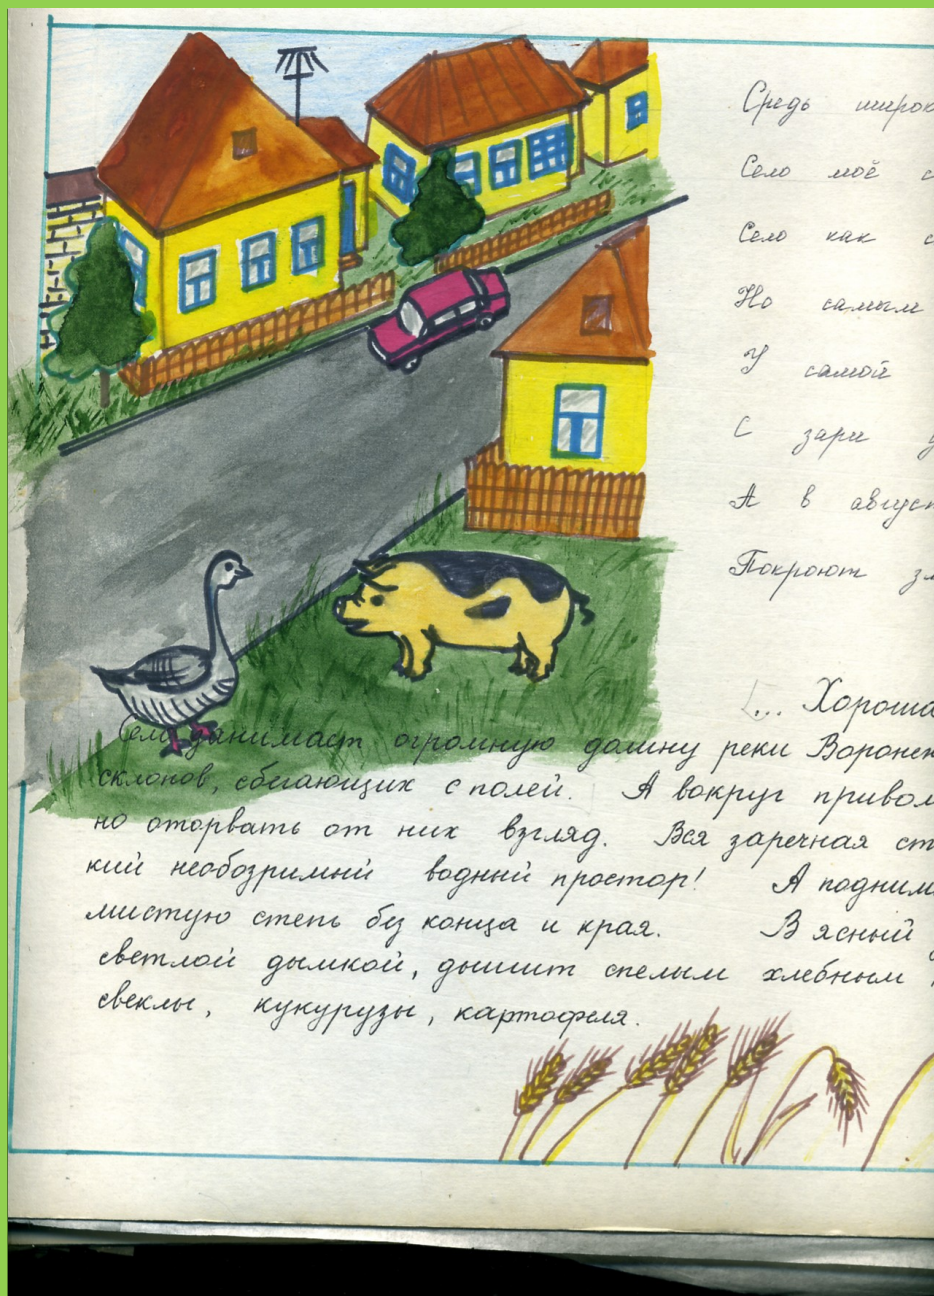 Средь широк
Село моё с
Село как с
Но самым
У самой
С зари у
А в август
Покроют зл
... Хороша
Село занимает огромную долину реки Воронеж
склонов, сбегающих с полей. А вокруг привол
но оторвать от них взгляд. Вся заречная ст
кий необозримый водный простор! А подним
мистую степь без конца и края. В ясный
светлой дымкой, дышит спелым хлебным
свеклы, кукурузы, картофеля.